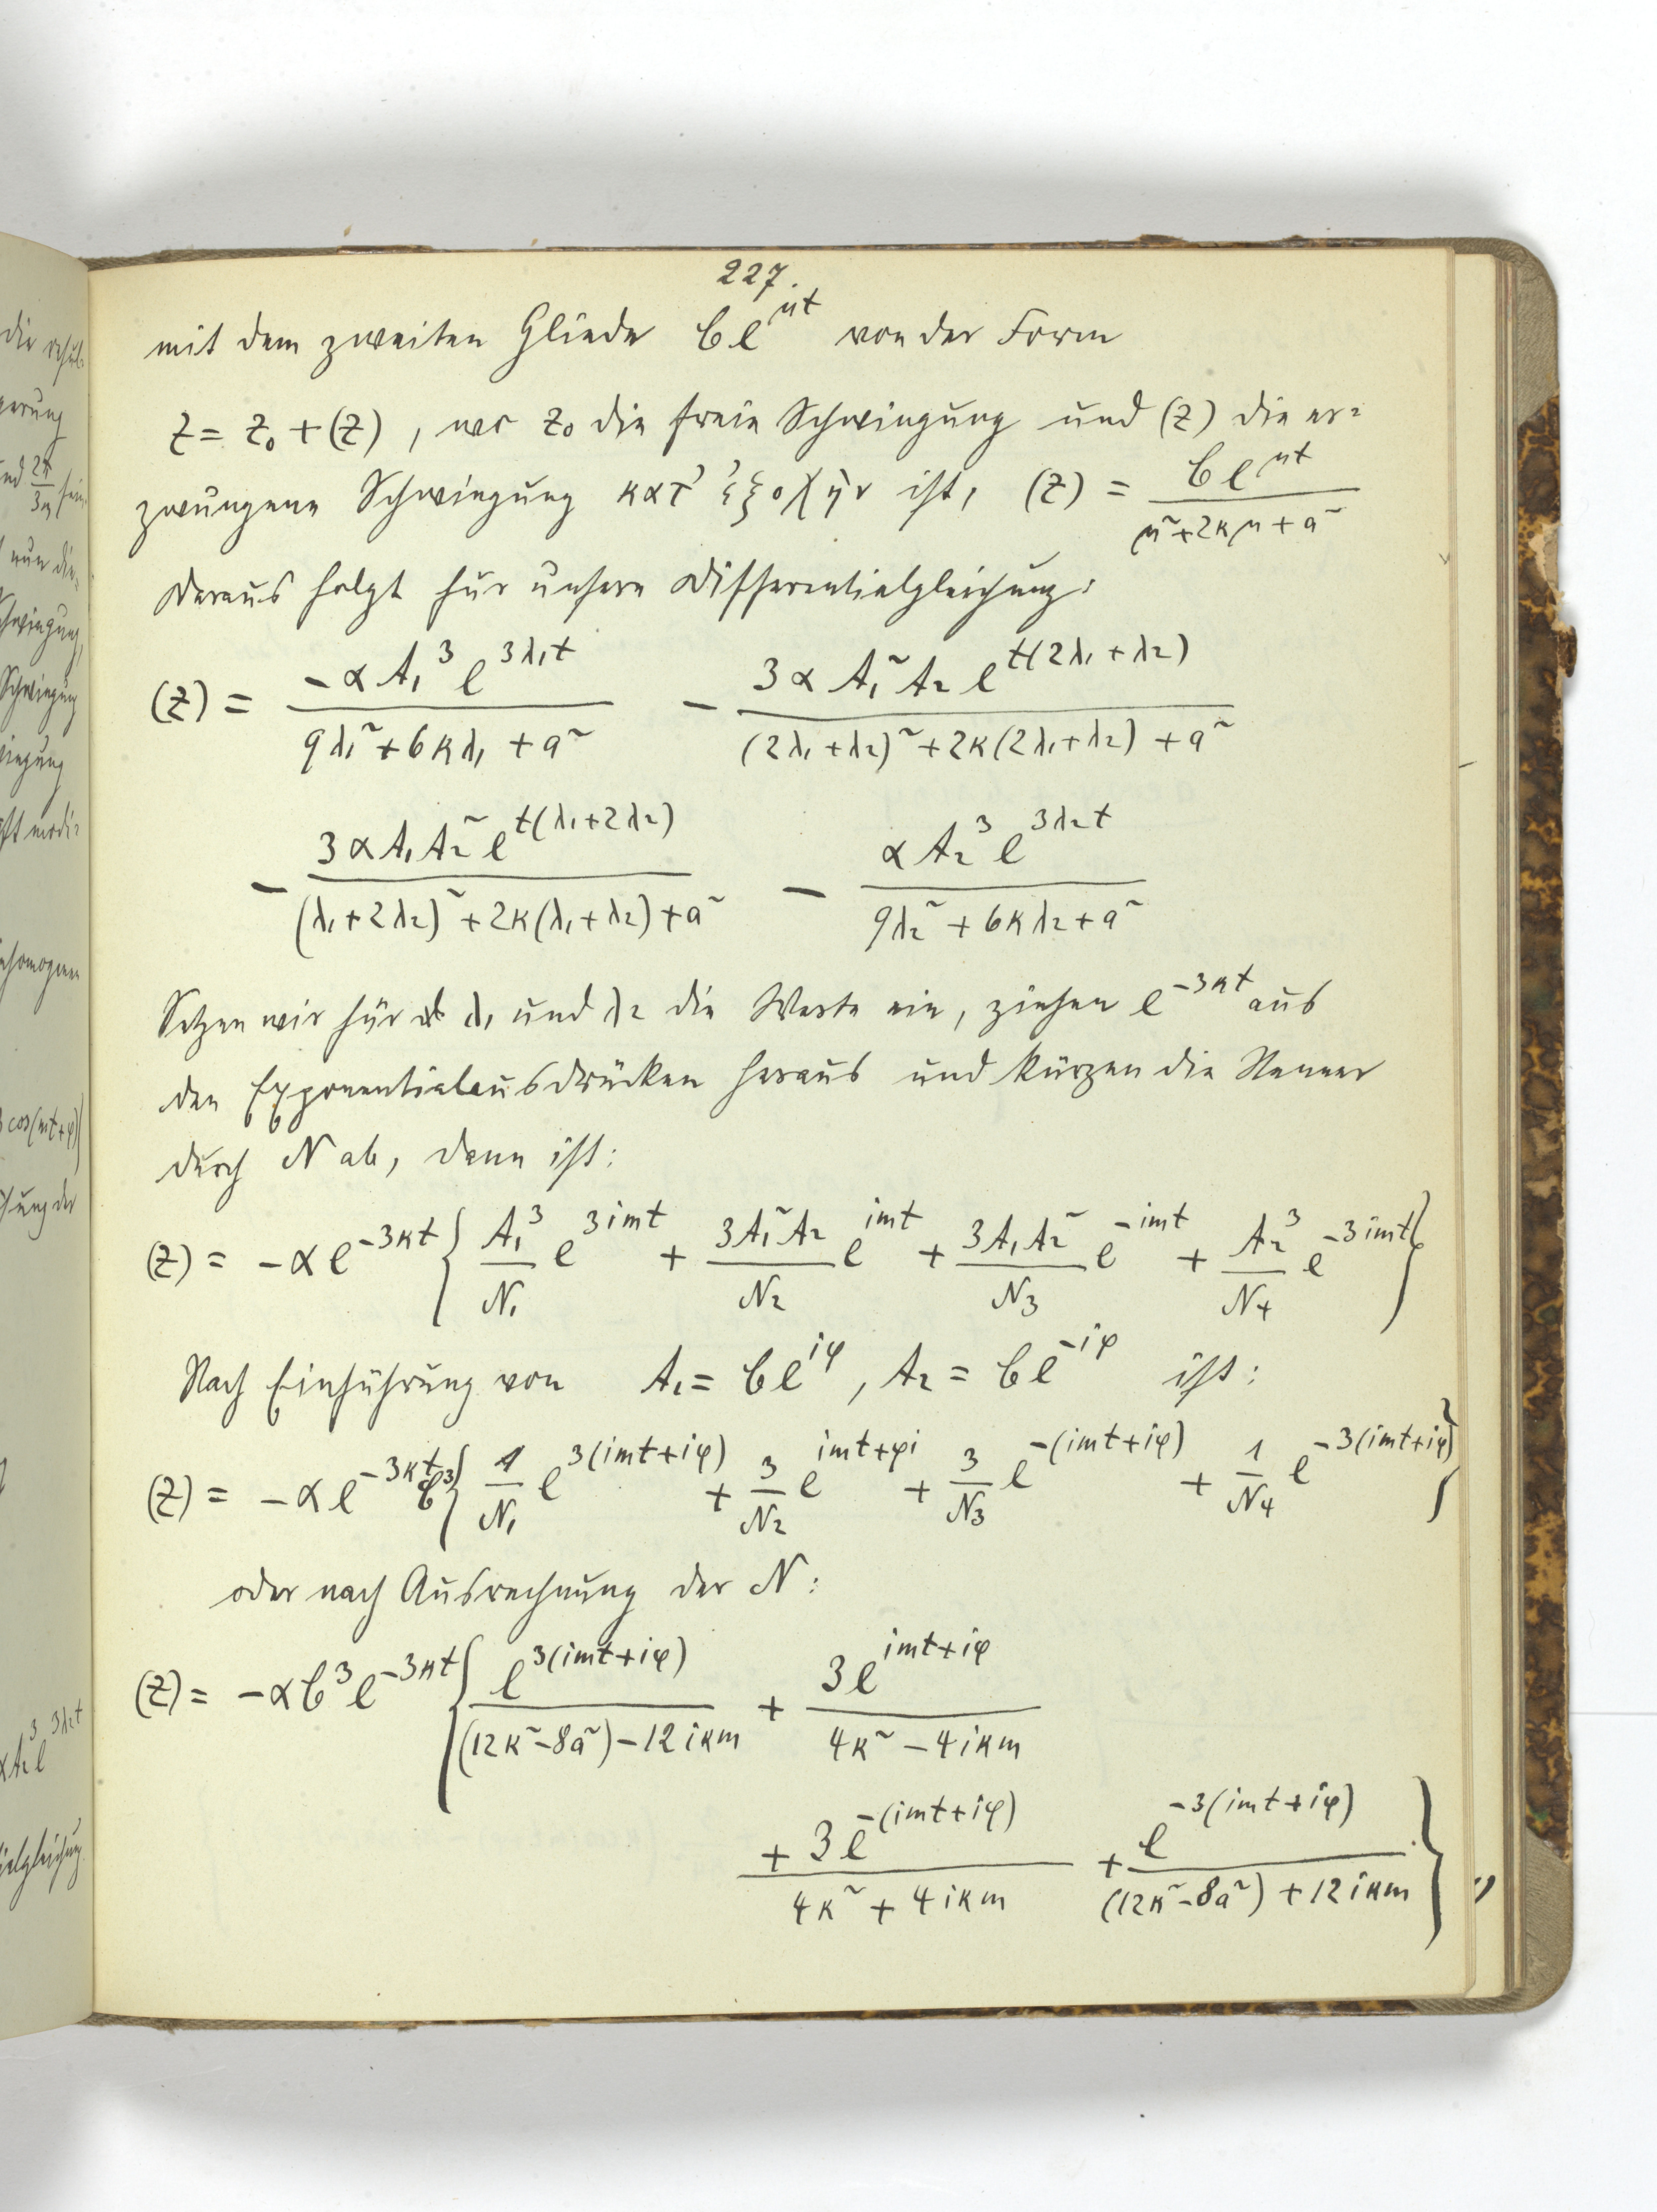 227.
mit dem zweiten Gliede b e^{μt} von der Form
z = z₀ + (z), wo z₀ die freie Schwingung und (z) die er=
zwungene Schwingung κατ' ἐξοχήν ist, (z) = \frac{b e^{μt}}{μ² + 2κμ + a²}
Daraus folgt für unsere Differentialgleichung:
(z) = \frac{-α A₁³ e^{3λ₁t}}{9λ₁² + 6κλ₁ + a²} - \frac{3α A₁² A₂ e^{t(2λ₁+λ₂)}}{(2λ₁+λ₂)² + 2κ(2λ₁+λ₂) + a²}
- \frac{3α A₁ A₂² e^{t(λ₁+2λ₂)}}{(λ₁+2λ₂)² + 2κ(λ₁+λ₂) + a²} - \frac{α A₂³ e^{3λ₂t}}{9λ₂² + 6κλ₂ + a²}
Setzen wir für λ₁ und λ₂ die Werte ein, ziehen e^{-3κt} aus
den Exponentialausdrücken heraus und kürzen die Nenner
durch N ab, dann ist:
(z) = -α e^{-3κt} { \frac{A₁³}{N₁} e^{3imt} + \frac{3A₁² A₂}{N₂} e^{imt} + \frac{3A₁ A₂²}{N₃} e^{-imt} + \frac{A₂³}{N₄} e^{-3imt} }
Nach Einführung von A₁ = b e^{iφ}, A₂ = b e^{-iφ} ist:
(z) = -α e^{-3κt} b³ { \frac{1}{N₁} e^{3(imt+iφ)} + \frac{3}{N₂} e^{imt+φi} + \frac{3}{N₃} e^{-(imt+iφ)} + \frac{1}{N₄} e^{-3(imt+iφ)} }
oder nach Ausrechnung der N:
(z) = -α b³ e^{-3κt} { \frac{e^{3(imt+iφ)}}{(12κ² - 8a²) - 12iκm} + \frac{3e^{imt+iφ}}{4κ² - 4iκm}
+ \frac{3e^{-(imt+iφ)}}{4κ² + 4iκm} + \frac{e^{-3(imt+iφ)}}{(12κ² - 8a²) + 12iκm} }